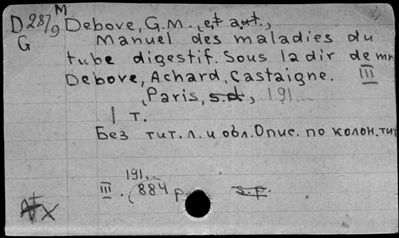 M
D 287/9 Debove, G.M., et aut.,
G Manuel des maladies du
tube digestif. Sous la dir de mm
Debove, Achard, Castaigne. III
Paris, s.d, 191...
1 т.
Без тит. л. и обл. Опис. по колон. тит
191...
III. (884 p s.p.